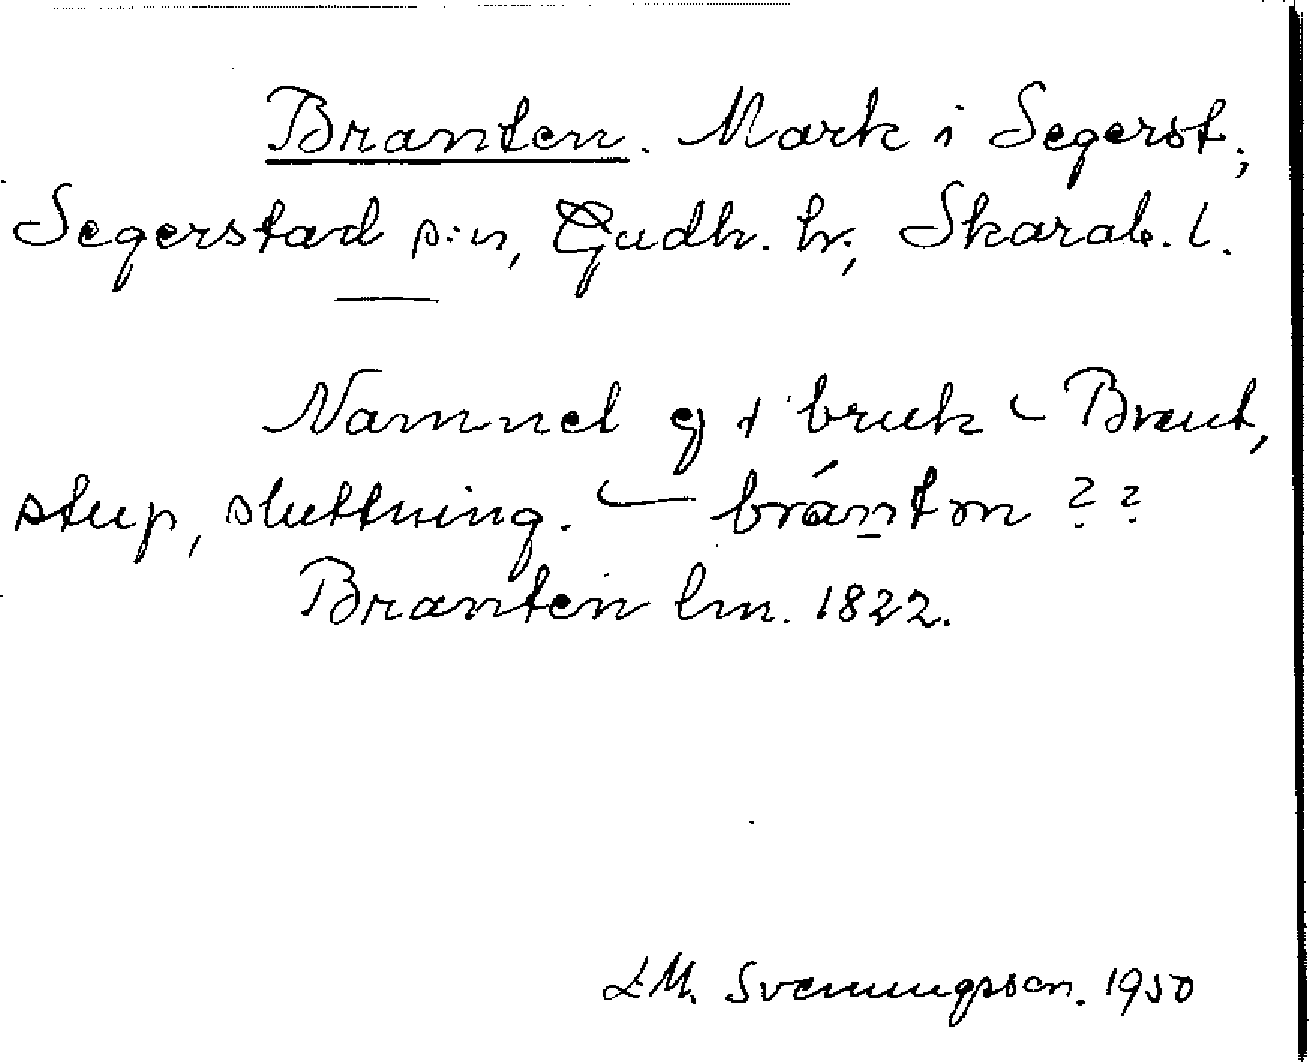 Branten. Mark i Segerst.,
Segerstad s:n, Gudh. hr, Skarab. l.
Namnet ej i bruk – Brant,
stup, sluttning. – brántən ??
Branten lm. 1822.
Svenningsson. 1950